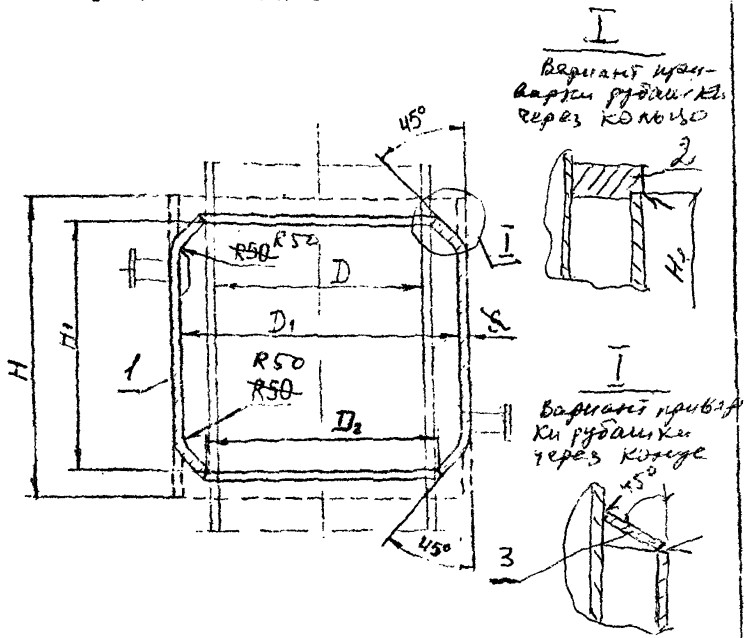 I
Вариант при-
варки рубашки
через кольцо
45°
2
R50 R50
I
H₂
D
D₁
S
H
H₁
1
R50
R50
I
Вариант привар
ки рубашки
через конус
D₂
45°
45°
3